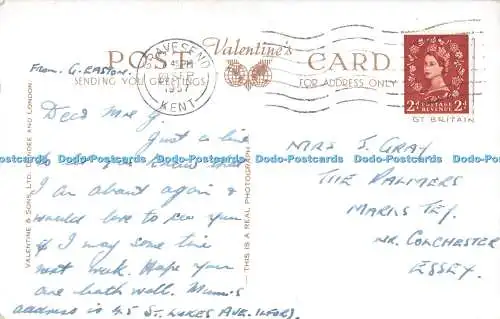 From. G. EASTON.
POST CARD
Valentine's
SENDING YOU GREETINGS
FOR ADDRESS ONLY
GRAVESEND
KENT
2D POSTAGE REVENUE 2D
GT BRITAIN
VALENTINE & SONS, LTD. DUNDEE AND LONDON
THIS IS A REAL PHOTOGRAPH
Dear Mrs G.
Just a line
to let you know that
I am about again &
would love to see you
if I may some time
next week. Hope your
are both well. Mum's
address is 45 ST. LUKES AVE. ILFORD.
MRS J. GRAY
THE PALMERS
MARKS TEY.
NR. COLCHESTER
ESSEX.
Dodo-Postcards Dodo-Postcards Dodo-Postcards Dodo-Postcards Dodo-Postcards